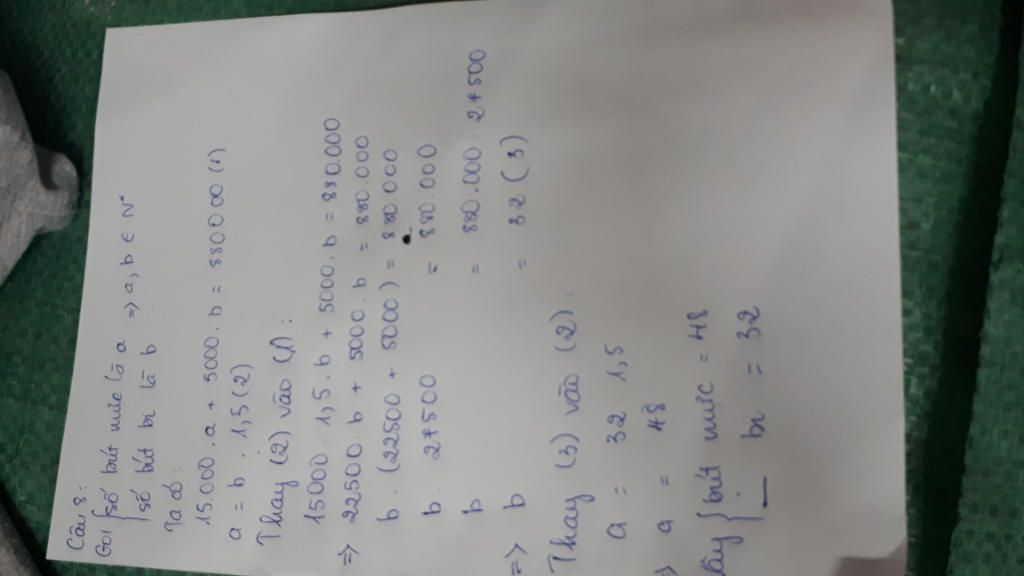 Câu 8:
Gọi { số bút mực là a => a, b ∈ N*
số bút bi là b
Ta có:
15.000.a + 5000.b = 880000 (1)
a = b . 1,5 (2)
Thay (2) vào (1):
15000 . 1,5 . b + 5000.b = 880.000
=> 22500.b + 5000.b = 880.000
b . (22500 + 5000) = 880.000
b . 27500 = 880.000
b = 880.000 : 27500
=> b = 32 (3)
Thay (3) vào (2):
a = 32 . 1,5
=> a = 48
Vậy { bút mực = 48
bi = 32